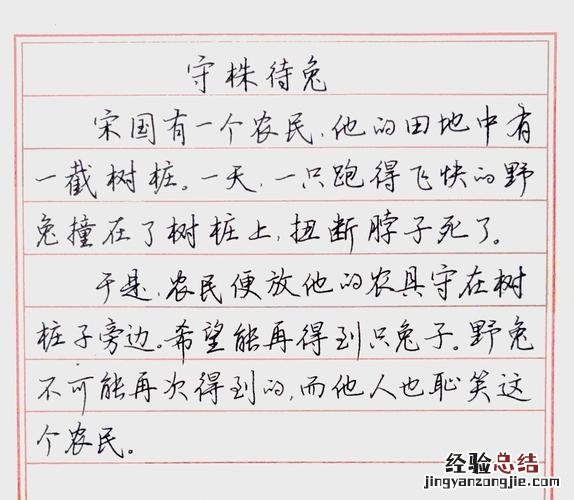 守株待兔
宋国有一个农民,他的田地中有
一截树桩。一天,一只跑得飞快的野
兔撞在了树桩上,扭断脖子死了。
于是,农民便放他的农具守在树
桩子旁边。希望能再得到只兔子。野兔
不可能再次得到的,而他人也耻笑这
个农民。
经验总结
jingyanzongjie.com